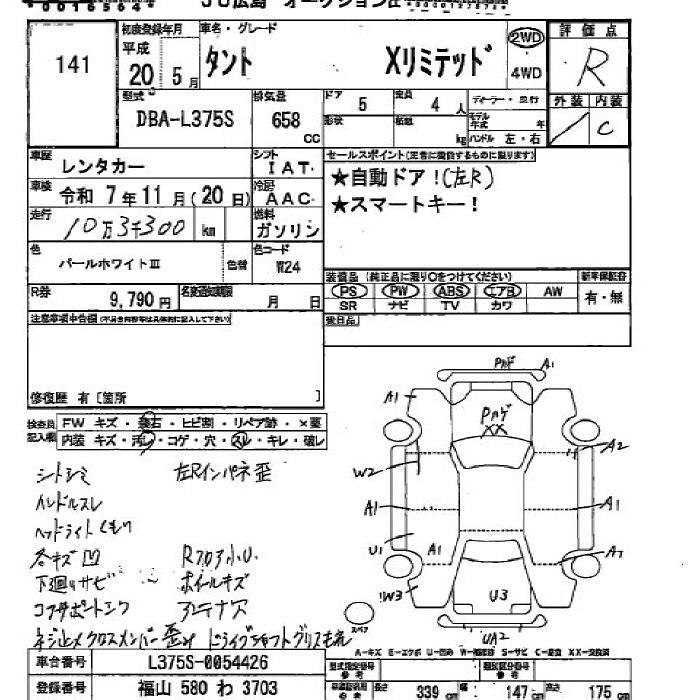 141
初度登録年月
平成
20 5月
車名・グレード
タント Xリミテッド
2WD
4WD
評価点
R
外装 内装
C
型式
DBA-L375S
排気量
658 cc
ドア 5
定員 4人
形状
積載 kg
モデル年式 年
ハンドル 左・右
車歴 レンタカー
シフト IAT
車検 令和 7年11月(20日)
冷房 AAC
走行 10万3千300 km
燃料 ガソリン
色 パールホワイトⅢ
色替
色コード W24
R券 9,790円
名変通知期限 月 日
セールスポイント(正常に機能するものに限ります)
★自動ドア!(左R)
★スマートキー!
装備品(純正品に限り○をつけてください)
PS PW ABS エアB AW
SR ナビ TV カワ
新車保証書
有・無
後日品
注意事項申告欄
修復歴 有[箇所 ]
検査員記入欄
FW キズ・飛石・ヒビ割・リペア跡・×要
内装 キズ・汚レ・コゲ・穴・スレ・キレ・破レ
シートシミ 左Rインパネ歪
ハンドルスレ
ヘッドライトくもり
各キズ凹 Rフロア小U
下廻りサビ ホイールキズ
コアサポートエク アンテナ穴
ネジ止メクロスメンバー歪ミ ドライブシャフトグリスモレ
Pハゲ A1
A1
Pハゲ
XX
A2
W2
A1
A1
U1
A1
A1
W3
U3
スペア
UA2
A-キズ E-エクボ U-凹み W-補修跡 S-サビ C-腐食 XX-交換済
車台番号 L375S-0054426
登録番号 福山 580 わ 3703
型式指定番号 参考
類別区分番号 参考
長さ 339cm
幅 147cm
高さ 175cm